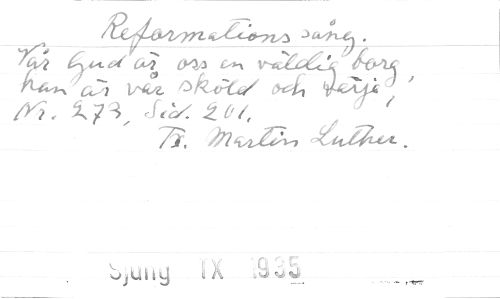 Reformationssång.
Vår Gud är oss en väldig borg,
han är vår sköld och värja,
Nr. 273, Sid. 201.
Tx. Martin Luther.
Sjung IX 1935